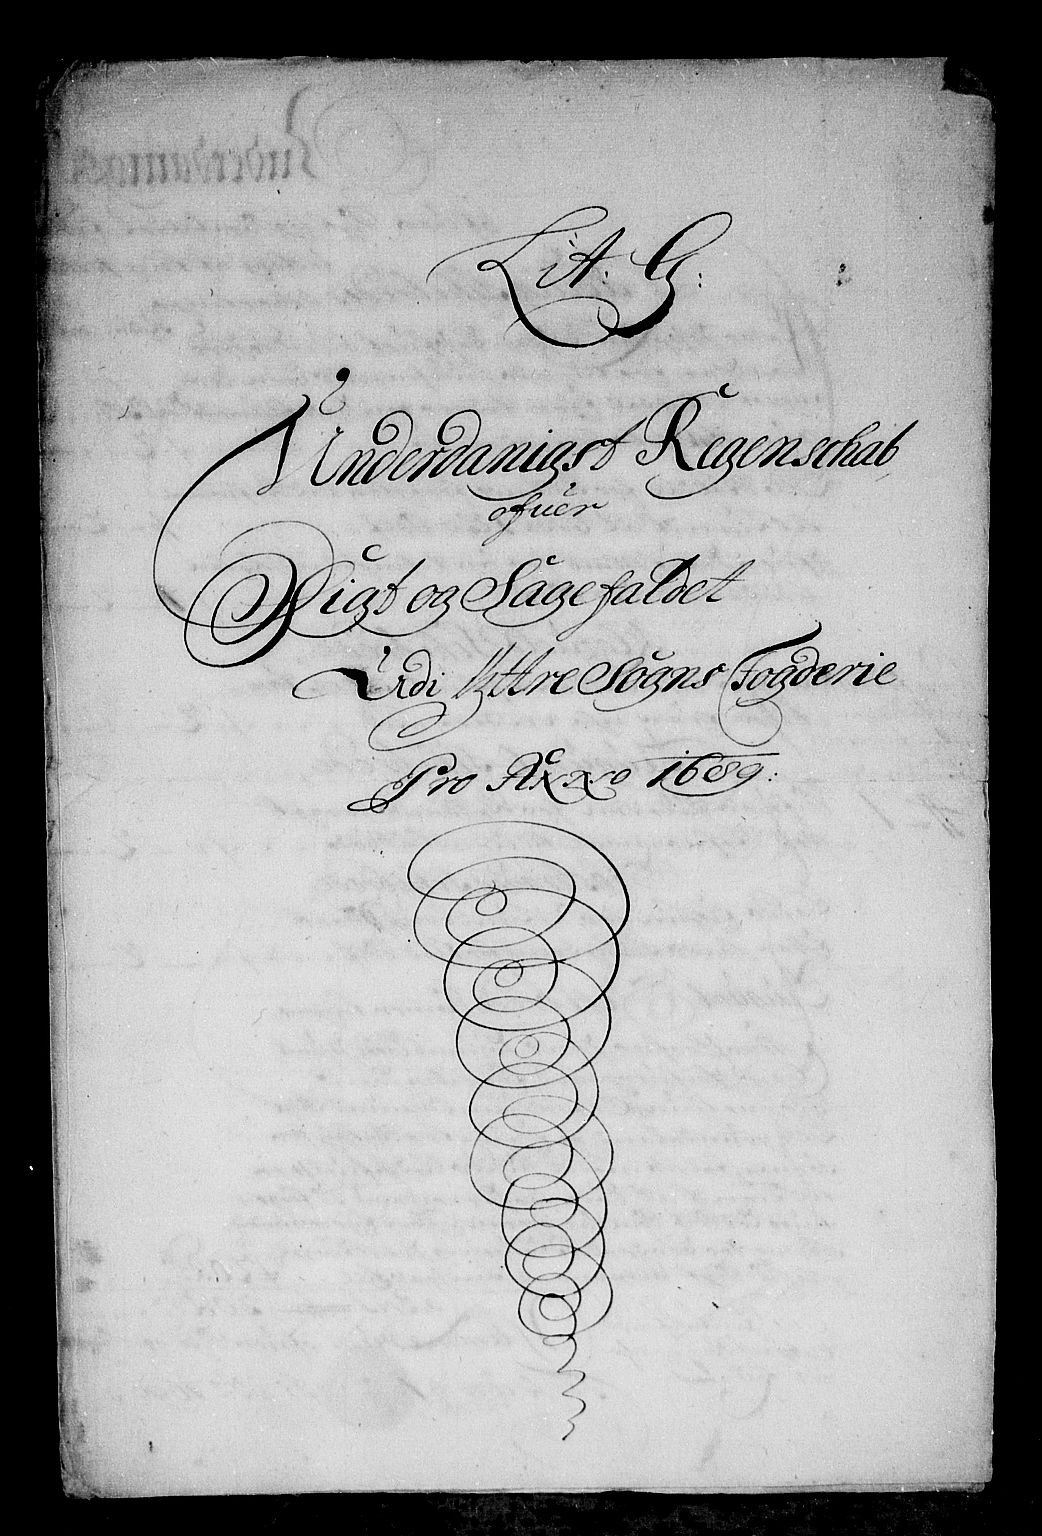 Lit. G:
Underdanigst Regenschab
ofuer
Sigt og Sagefaldet
Udi Yttre Sogns Fogderie
Pro Anno 1689: